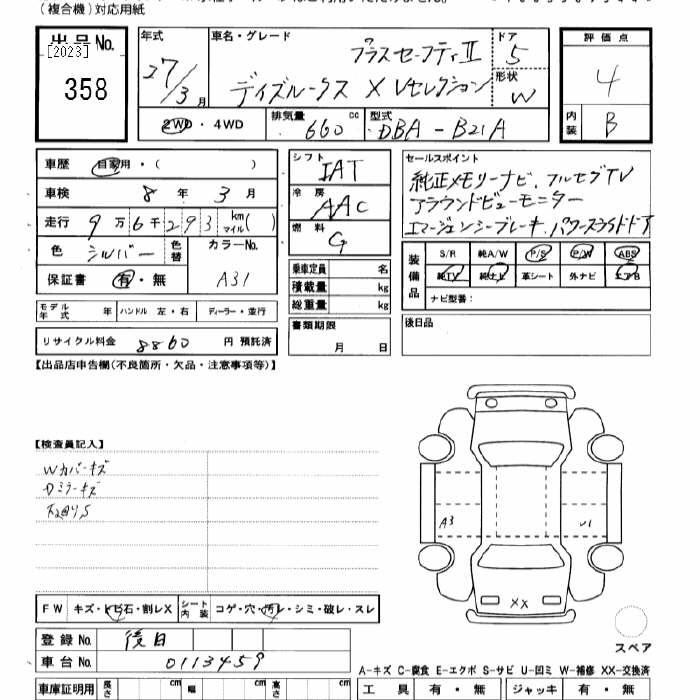 (複合機)対応用紙
出品No.
[2023]
358
年式 27/3月
車名・グレード プラスセーフティII
デイズルークス X Vセレクション
ドア 5
形状 W
評価点 4
内装 B
2WD・4WD
排気量 660 cc
型式 DBA-B21A
車歴 自家用・( )
車検 8年 3月
走行 9万6千293 km マイル( )
色 シルバー 色替
カラーNo. A31
保証書 有・無
モデル年式 年 ハンドル 左・右 ディーラー・並行
リサイクル料金 8860 円 預託済
シフト IAT
冷房 AAC
燃料 G
乗車定員 名
積載量 kg
総重量 kg
書類期限
月 日
セールスポイント
純正メモリーナビ.フルセグTV
アラウンドビューモニター
エマージェンシーブレーキ.パワースライドドア
装備品 S/R 純A/W P/S P/W ABS
純TV 純ナビ 革シート 外ナビ エアB
ナビ型番:
後日品
【出品店申告欄(不良箇所・欠品・注意事項等)】
【検査員記入】
Wカバーキズ
Dミラーキズ
下廻りS
A3
U1
XX
スペア
FW キズ・トビ石・割レX シート内装 コゲ・穴・汚レ・シミ・破レ・スレ
登録No. 後日
車台No. 0113459
A-キズ C-腐食 E-エクボ S-サビ U-凹ミ W-補修 XX-交換済
車庫証明用 長さ cm 幅 cm 高さ cm
工具 有・無 ジャッキ 有・無